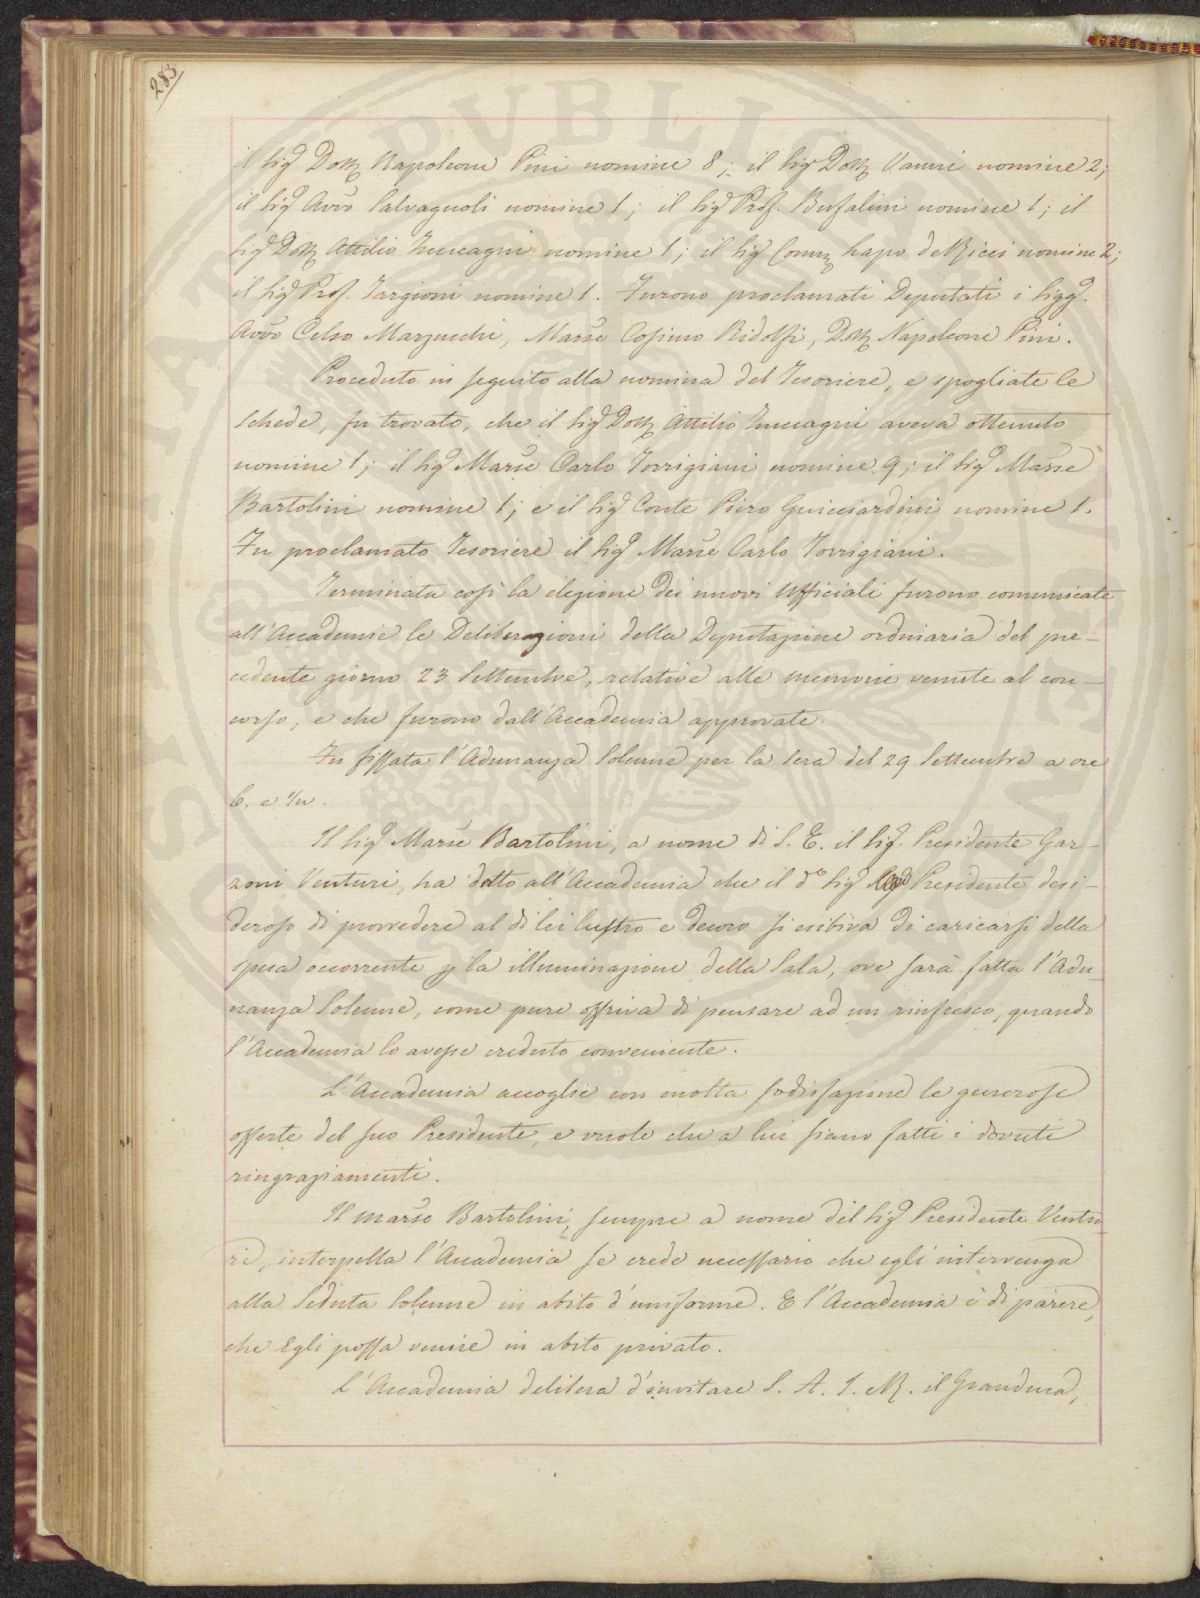 283
il Sig.r Dott. Napoleone Pini nomine 8; il Sig.r Dott. Vanni nomine 2;
il Sig.r Avv.o Salvagnoli nomine 1; il Sig.r Prof. Bufalini nomine 1; il
Sig.r Dott. Attilio Zuccagni nomine 1; il Sig.r Comm. Lapo de Ricci nomine 2;
il Sig.r Prof. Targioni nomine 1. Furono proclamati Deputati i Sigg.
Avv.o Celso Marzucchi, Marse Cosimo Ridolfi, Dott. Napoleone Pini.
Proceduto in seguito alla nomina del Tesoriere, e spogliate le
schede, fu trovato, che il Sig.r Dott. Attilio Zuccagni aveva ottenuto
nomine 1; il Sig.r Marse Carlo Torrigiani nomine 9; il Sig.r Marse
Bartolini nomine 1; e il Sig.r Conte Piero Guicciardini nomine 1.
Fu proclamato Tesoriere il Sig.r Marse Carlo Torrigiani.
Terminata così la elezione dei nuovi Ufficiali furono comunicate
all'Accademie le Deliberazioni della Deputazione ordinaria del pre-
cedente giorno 23 Settembre, relative alle memorie venute al con-
corso, e che furono dall'Accademia approvate.
Fu fissata l'Adunanza Solenne per la sera del 29 Settembre a ore
6. e ½.
Il Sig.r Marse Bartolini, a nome di S. E. il Sig.r Presidente Gar-
zoni Venturi, ha detto all'Accademia che il d.o Sig.r Presidente desi-
deroso di provvedere al di lei lustro e decoro si esibiva di caricarsi della
spesa occorrente p la illuminazione della Sala, ove sarà fatta l'Adu-
nanza Solenne, come pure offriva di pensare ad un rinfresco, quando
l'Accademia lo avesse creduto conveniente.
L'Accademia accoglie con molta sodisfazione le generose
offerte del suo Presidente, e vuole che a lui siano fatti i dovuti
ringraziamenti.
Il Marse Bartolini, sempre a nome del Sig.r Presidente Ventu-
ri, interpella l'Accademia se crede necessario che egli intervenga
alla Seduta Solenne in abito d'uniforme. E l'Accademia è di parere,
che Egli possa venire in abito privato.
L'Accademia delibera d'invitare S. A. I. e R. il Granduca,